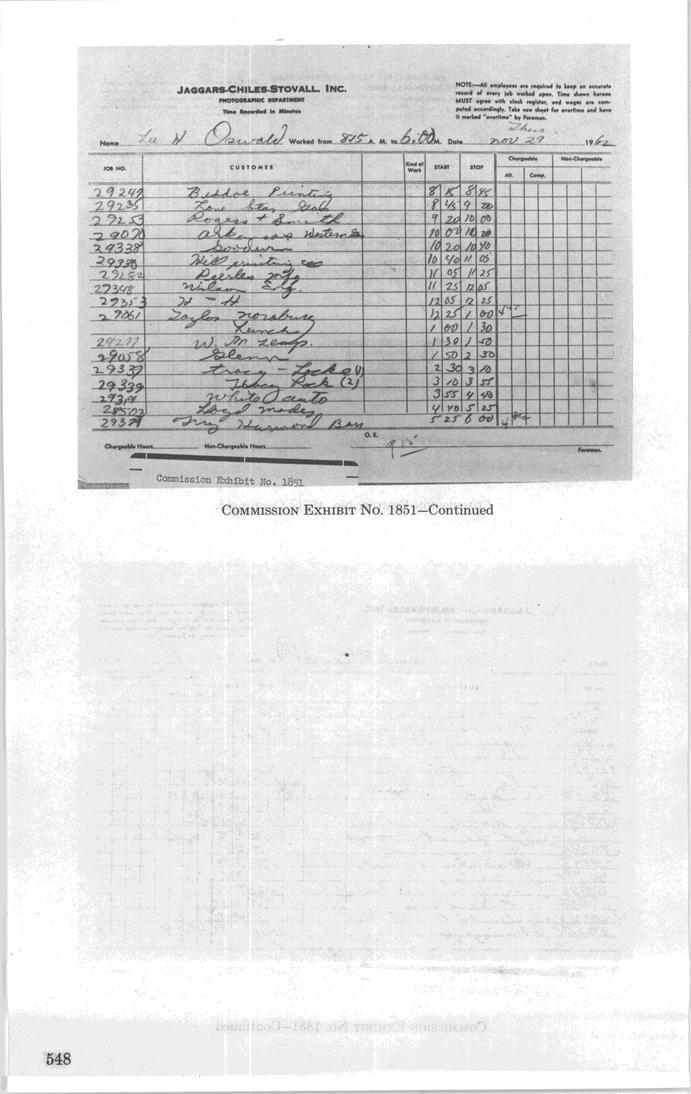 JAGGARS-CHILES-STOVALL, INC.
PHOTOGRAPHIC DEPARTMENT
Time Recorded in Minutes
NOTE:—All employees are required to keep an accurate
record of every job worked upon. Time shown hereon
MUST agree with clock register, and wages are com-
puted accordingly. Take new sheet for overtime and have
it marked "overtime" by Foreman.
Thurs.
Name Lee H Oswald Worked from 845 A. M. to 6:00 M. Date nov 29 1962
JOB NO. CUSTOMER Kind of Work START STOP Chargeable Non-Chargeable
Alt. Comp.
29249 Beddoe Printing 8 15 8 45
29235 Lone Star 8 45 9 20
29253 Rogers + Smith 9 20 10 00
29070 Arkansas Western 10 00 10 20
29338 Goodwin 10 20 10 40
Hill printing co 10 40 11 05
29282 Peerles mfg 11 05 11 25
29348 Wilson Eng. 11 25 12 05
29353 H - H 12 05 12 25
29061 Taylor 12 25 1 00
Lunch 1 00 1 30
29277 W. M 1 30 1 50
29058 Glenn 1 50 2 30
29337 tracy - Locke (4) 2 30 3 10
29339 Rock (2) 3 10 3 55
White auto 3 55 4 40
Loyd 4 40 5 25
Harmond 5 25 6 00
Chargeable Hours Non-Chargeable Hours O.K. 915 Foreman.
Commission Exhibit No. 1851
COMMISSION EXHIBIT No. 1851—Continued
548